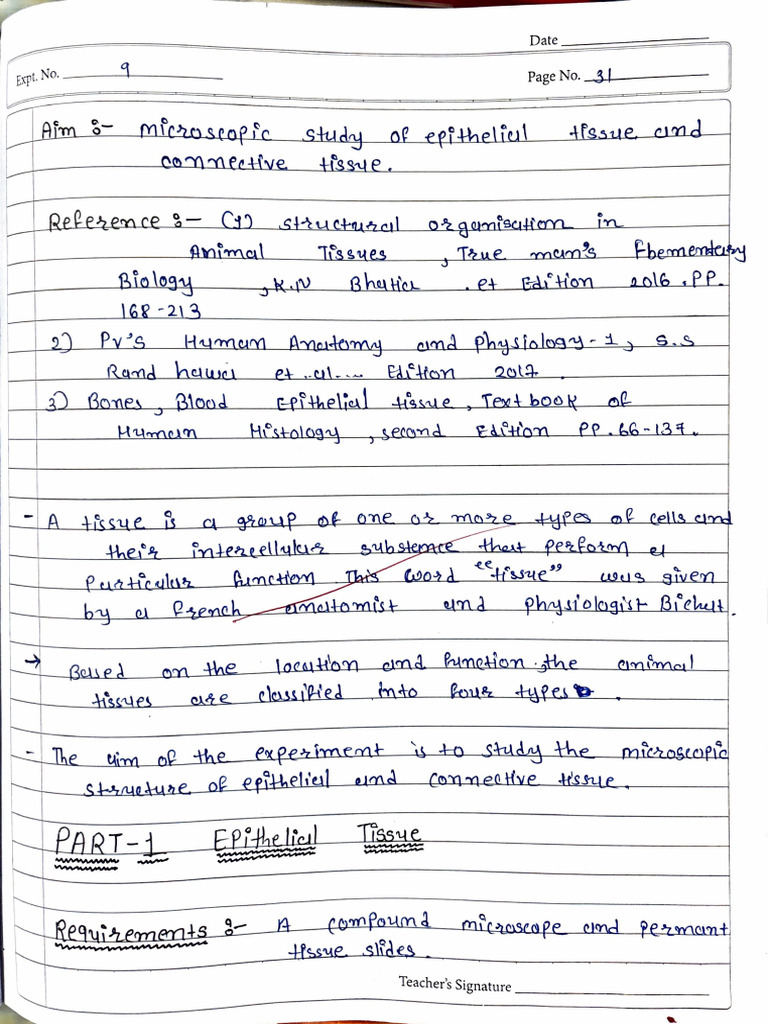 Date
Expt. No. 9
Page No. 31
Aim :- Microscopic study of epithelial tissue and
connective tissue.
Reference :- (1) Structural organisation in
Animal Tissues , True man's Ebementary
Biology , K.N Bhatia . et Edition 2016 . PP.
168-213
2) PV's Human Anatomy and Physiology-1, S.S
Rand hawa et ..al... Edition 2017 .
3) Bones, Blood Epithelial tissue, Text book of
Human Histology , second Edition PP. 66-137.
- A tissue is a group of one or more types of cells and
their intercellular substence that perform a
Particular function This word "tissue" was given
by a french anatomist and physiologist Bichat.
→ Based on the location and function ,the animal
tissues are classified into four types .
- The aim of the experiment is to study the microscopic
structure of epithelial and connective tissue.
PART-1 EPithelial Tissue
Requirements :- A compound microscope and permant
tissue slides.
Teacher's Signature